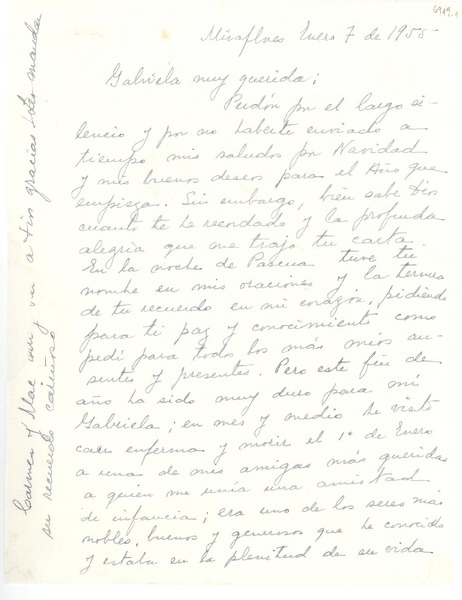 Miraflores Enero 7 de 1955
Gabriela muy querida;
Perdón por el largo si-
lencio y por no haberte enviado a
tiempo mis saludos por Navidad
y mis buenos deseos para el Año que
empieza. Sin embargo, bien sabe Dios
cuanto te he recordado y la profunda
alegría que me trajo tu carta.
En la noche de Pascua tuve tu
nombre en mis oraciones y la ternura
de tu recuerdo en mi corazón, pidiendo
para ti paz y conocimiento como
pedí para todos los más míos au-
sentes y presentes. Pero este fin de
año ha sido muy duro para mí
Gabriela; en mes y medio he visto
caer enferma y morir el 1º de Enero
a una de mis amigas más queridas
a quien me unía una amistad
de infancia; era uno de los seres más
nobles, buenos y generosos que he conocido
y estaba en la plenitud de su vida
Carmen y Mac a Dios gracias y te mandan
su recuerdo cariñoso